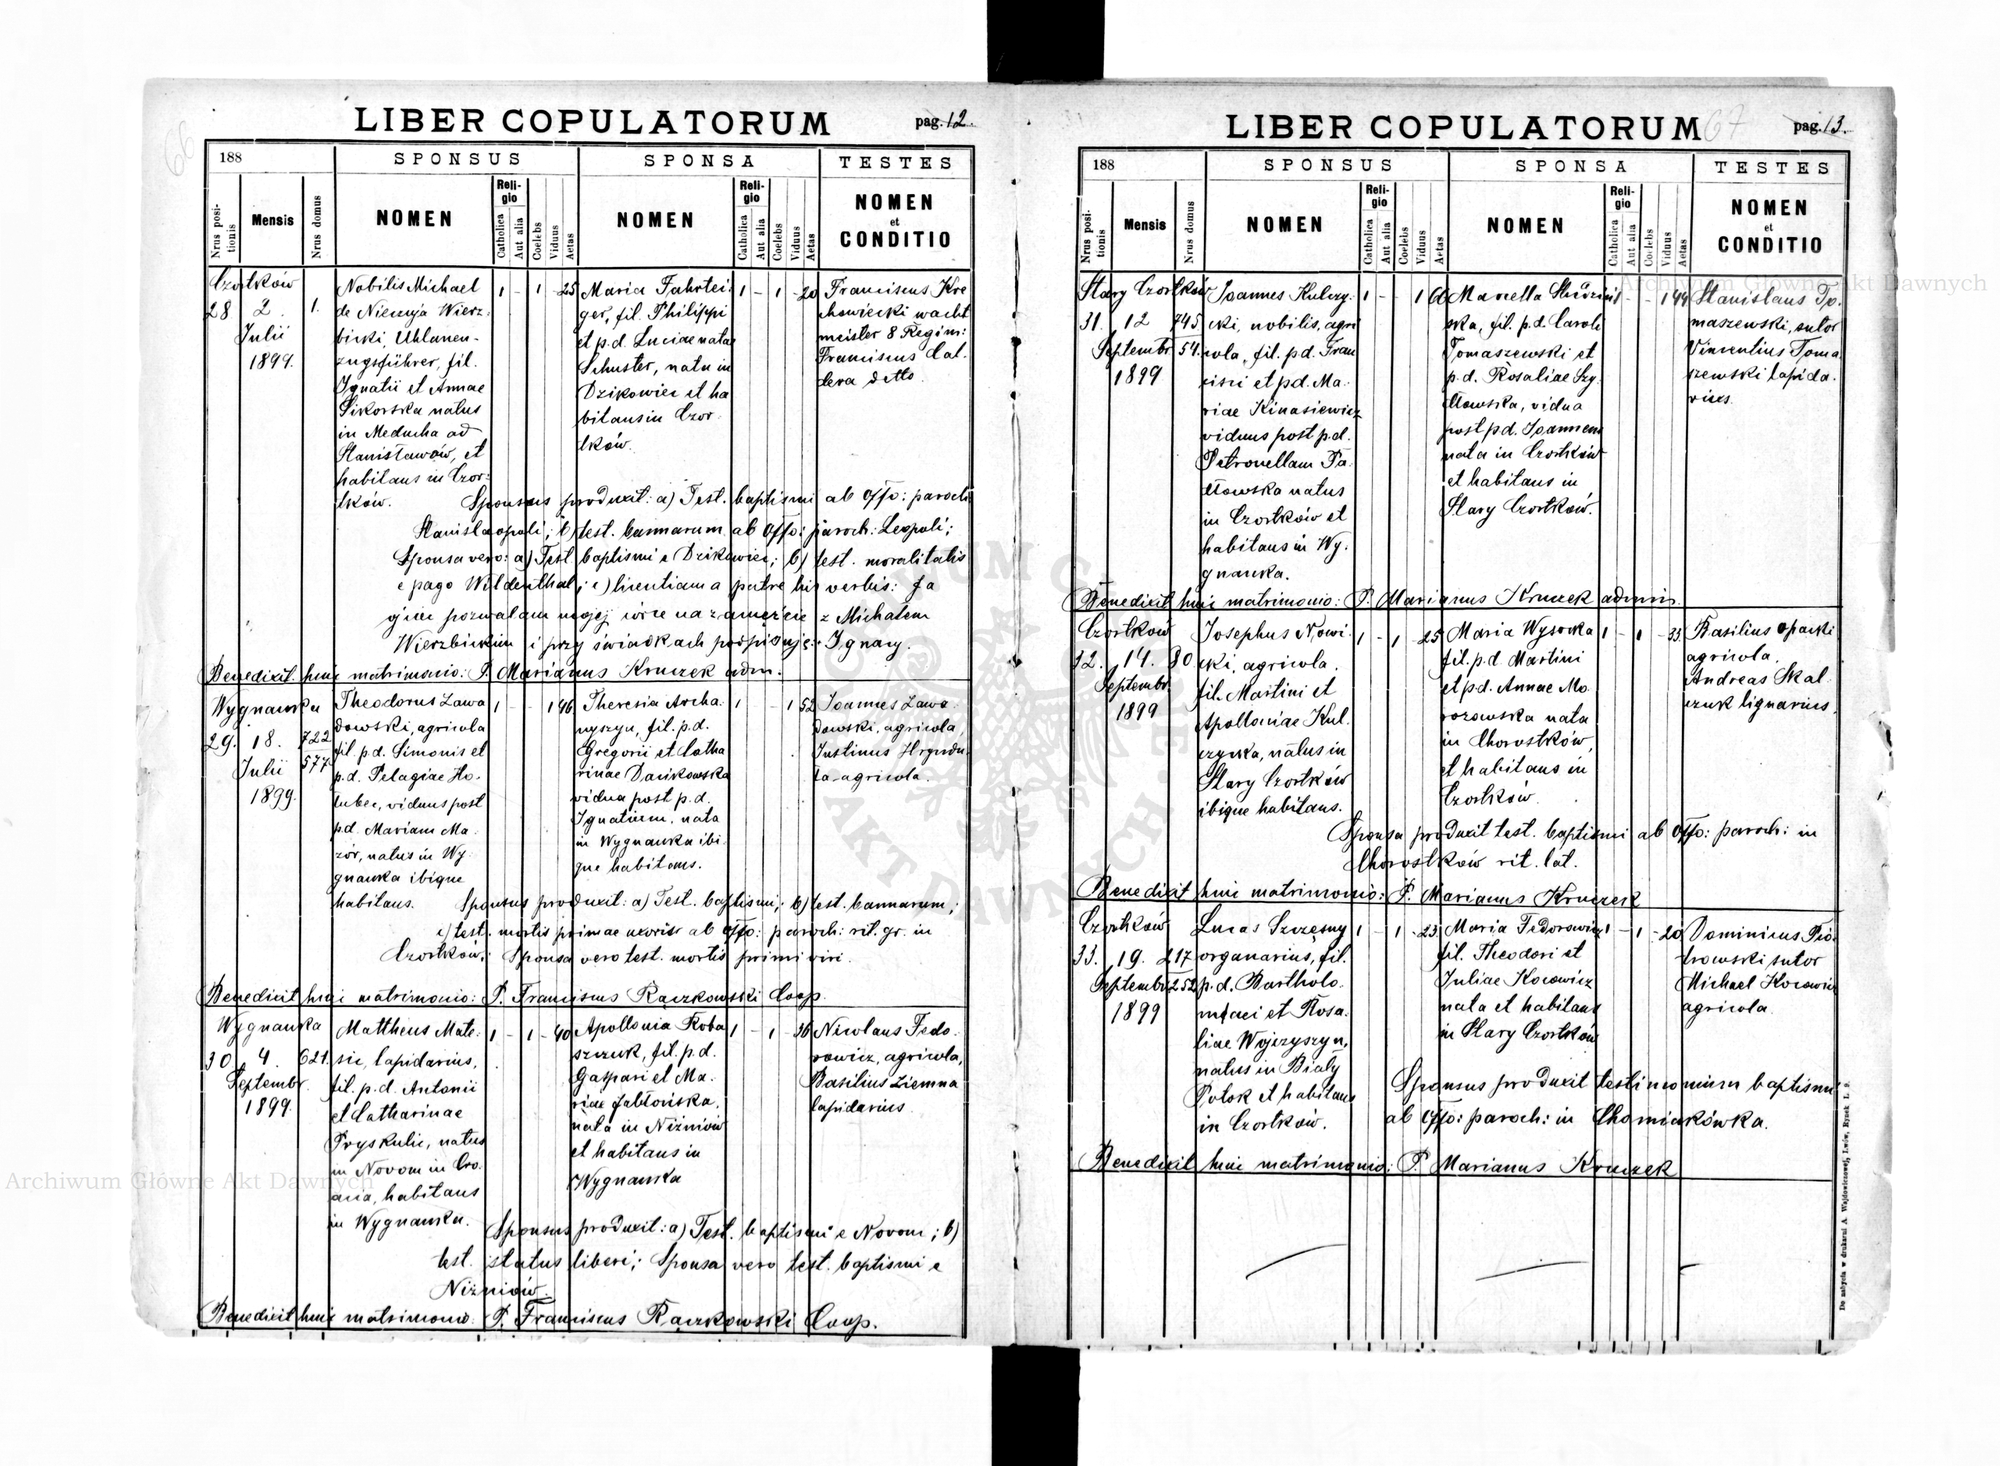 LIBER COPULATORUM
pag. 12.
66
188
SPONSUS
SPONSA
TESTES
Nrus positionis
Mensis
Nrus domus
NOMEN
Religio
Catholica
Aut alia
Coelebs
Viduus
Aetas
NOMEN
Religio
Catholica
Aut alia
Coelebs
Viduus
Aetas
NOMEN
et
CONDITIO
Czortków
28 2. 1.
Julii
1899.
Nobilis Michael
de Nieczuja Wierz-
bicki, Uhlanen-
zugsführer, fil.
Ignatii et Annae
Sikorska natus
in Meducha ad
Stanisławów, et
habitans in Czor-
tków.
1 - 1 25
Maria Fahrtei-
ger, fil. Philippi
et p.d. Luciae nata
Schuster, nata in
Dzikowiec et ha
bitans in Czor-
tków.
1 - 1 - 20
Franciscus Kre
chowiecki wacht
meister 8 Regim:
Franciscus Cal-
dera detto.
Sponsus produxit: a) Test. baptismi ab Offo: paroch
Stanislaopoli; b) test. bannorum ab Offo: paroch: Leopoli;
Sponsa vero: a) Test baptismi e Dzikowiec; b) test. moralitatis
e pago Wildenthal; c) licentiam a patre his verbis: Ja
ojciec pozwalam mojej córce na zamęźcie z Michałem
Wierzbickim i przy świadkach podpisuję: Ignacy.
Benedixit huic matrimonio: P. Marianus Kruczek adm.
Wygnanka
29. 18. 722
Julii 577
1899.
Theodorus Zawa
dowski, agricola
fil p.d. Simonis et
p.d. Pelagiae Ho-
lubec, viduus post
p.d. Mariam Ma-
zór, natus in Wy-
gnanka ibique
habitans.
1 - - 1 46
Theresia Archa-
nyszyn, fil. p.d.
Gregorii et Catha
rinae Danikowska
vidua post p.d.
Ignatium, nata
in Wygnanka ibi-
que habitans.
1 - - 1 52
Joannes Zawa-
dowski, agricola,
Justinus Hryndu-
la agricola.
Sponsus produxit: a) Test. baptismi; b) test. bannorum;
c) test. mortis primae uxoris ab Offo: paroch: rit. gr. in
Czortków; Sponsa vero test. mortis primi viri.
Benedixit huic matrimonio: P. Franciscus Raczkowski Coop.
Wygnanka
30 4. 621.
Septembr.
1899.
Mattheus Mate-
sic, lapidarius,
fil. p.d. Antonii
et Catharinae
Pryskulic, natus
in Novom in Cro-
atia, habitans
in Wygnanka.
1 - 1 - 40
Apollonia Roba
szczuk, fil. p.d.
Gaspari et Ma-
riae Jabłońska,
nata in Niżniów
et habitans in
Wygnanka
1 - 1 - 36
Nicolaus Fedo-
rowicz, agricola,
Basilius Ziemna
lapidarius
Sponsus produxit: a) Test. baptismi e Novom; b)
test. status liberi; Sponsa vero test. baptismi e
Niżniów.
Benedixit huic matrimonio: P. Franciscus Raczkowski Coop.
LIBER COPULATORUM
67
pag. 13.
188
SPONSUS
SPONSA
TESTES
Nrus positionis
Mensis
Nrus domus
NOMEN
Religio
Catholica
Aut alia
Coelebs
Viduus
Aetas
NOMEN
Religio
Catholica
Aut alia
Coelebs
Viduus
Aetas
NOMEN
et
CONDITIO
Stary Czortków
31. 12 745
Septembr 54.
1899
Joannes Kulczy-
cki, nobilis, agri
cola, fil. p.d. Fran
cisci et p.d. Ma-
riae Kinasiewicz
viduus post p.d.
Petronellam Pa-
włowska natus
in Czortków et
habitans in Wy-
gnanka.
1 - - 1 60
Marcella Skórzeń-
ska, fil. p.d. Caroli
Tomaszewski et
p.d. Rosaliae Szy-
dłowska, vidua
post p.d. Joannem
nata in Czortków
et habitans in
Stary Czortków.
1 - - 1 44
Stanislaus To-
maszewski, sutor
Vincentius Toma
szewski lapida-
rius.
Benedixit huic matrimonio: P. Marianus Kruczek admin.
Czortków
32. 14. 80.
Septembr.
1899
Josephus Nowi-
cki, agricola.
fil. Martini et
Apolloniae Kul-
czycka, natus in
Stary Czortków
ibique habitans.
1 - 1 25
Maria Wysocka
fil. p.d Martini
et p.d. Annae Mo-
rozowska nata
in Chorostków,
et habitans in
Czortków.
1 - 1 - 33
Basilius Oparki
agricola,
Andreas Skal-
czuk lignarius.
Sponsa produxit test. baptismi ab Offo: paroch: in
Chorostków rit. lat.
Benedixit huic matrimonio: P. Marianus Kruczek
Czortków
33. 19. 217
Septembr. 252
1899
Lucas Szczęsny
organarius, fil.
p.d. Bartholo-
maei et Rosa-
liae Wojczyszyn,
natus in Biały
Potok et habitans
in Czortków.
1 - 1 - 23
Maria Fedorowicz
fil. Theodori et
Juliae Kocowicz
nata et habitans
in Stary Czortków
1 - 1 - 20
Dominicus Pio-
trowski sutor
Michael Kocowicz
agricola.
Sponsus produxit testimonium baptismi
ab Offo: paroch: in Chomiakówka.
Benedixit huic matrimonio: P. Marianus Kruczek
Do nabycia w drukarni A. Wajdowiczowej, Lwów, Rynek L. 9.
Archiwum Główne Akt Dawnych
Archiwum Główne Akt Dawnych